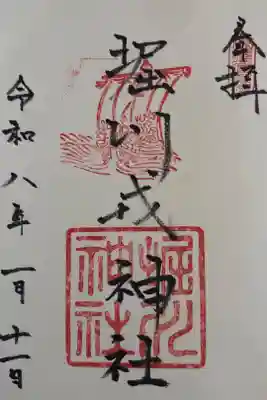 奉拝
堀川戎神社
令和八年一月十一日